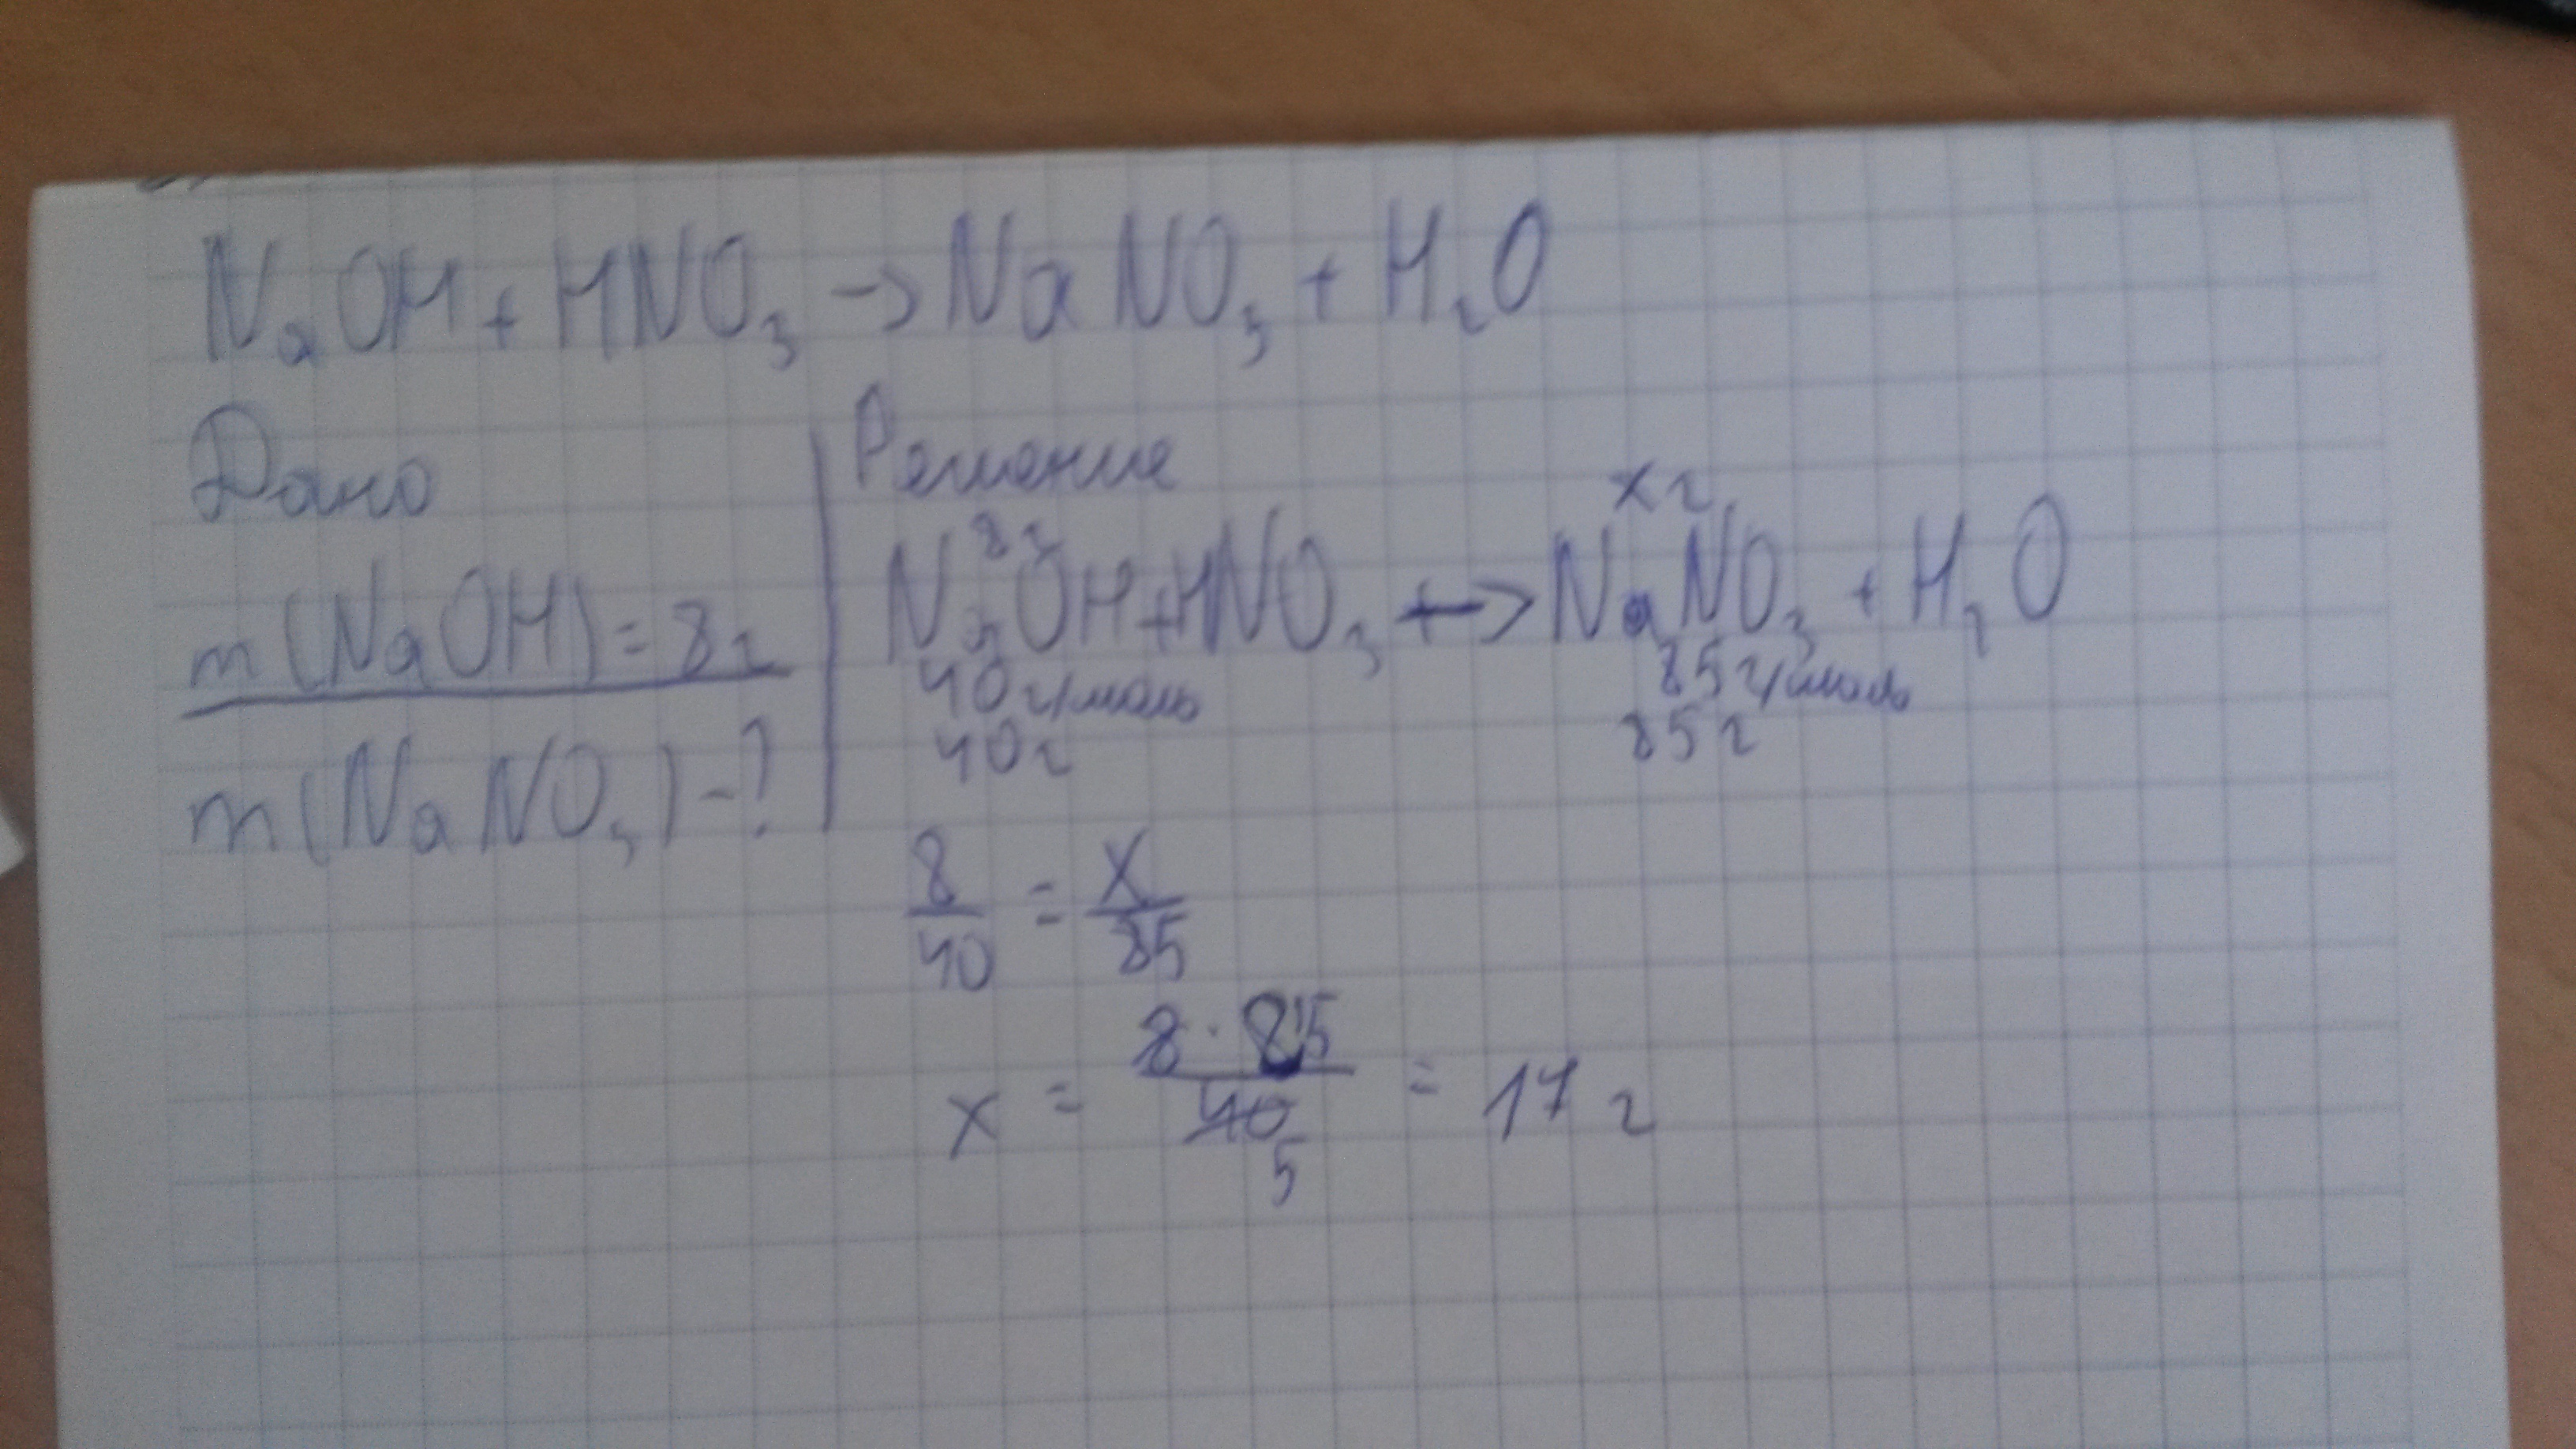 NaOH + HNO₃ → NaNO₃ + H₂O
Дано
m(NaOH) = 8г
m(NaNO₃) - ?
Решение
8г xг
NaOH + HNO₃ → NaNO₃ + H₂O
40г/моль 85г/моль
40г 85г
8/40 = x/85
x = 8 · 85 / 40 5 = 17 г